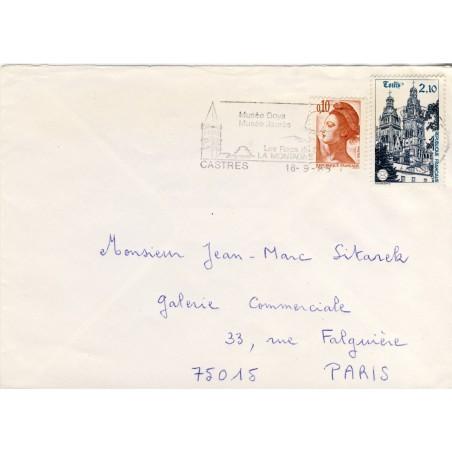 Musée Goya
Musée Jaurès
Les Rocs
LA MONTAGNE
CASTRES
16-9-
0,10
REPUBLIQUE FRANÇAISE
Tours
2,10
REPUBLIQUE FRANÇAISE
Monsieur Jean-Marc Sitarek
Galerie Commerciale
33, rue Falguière
75015 PARIS